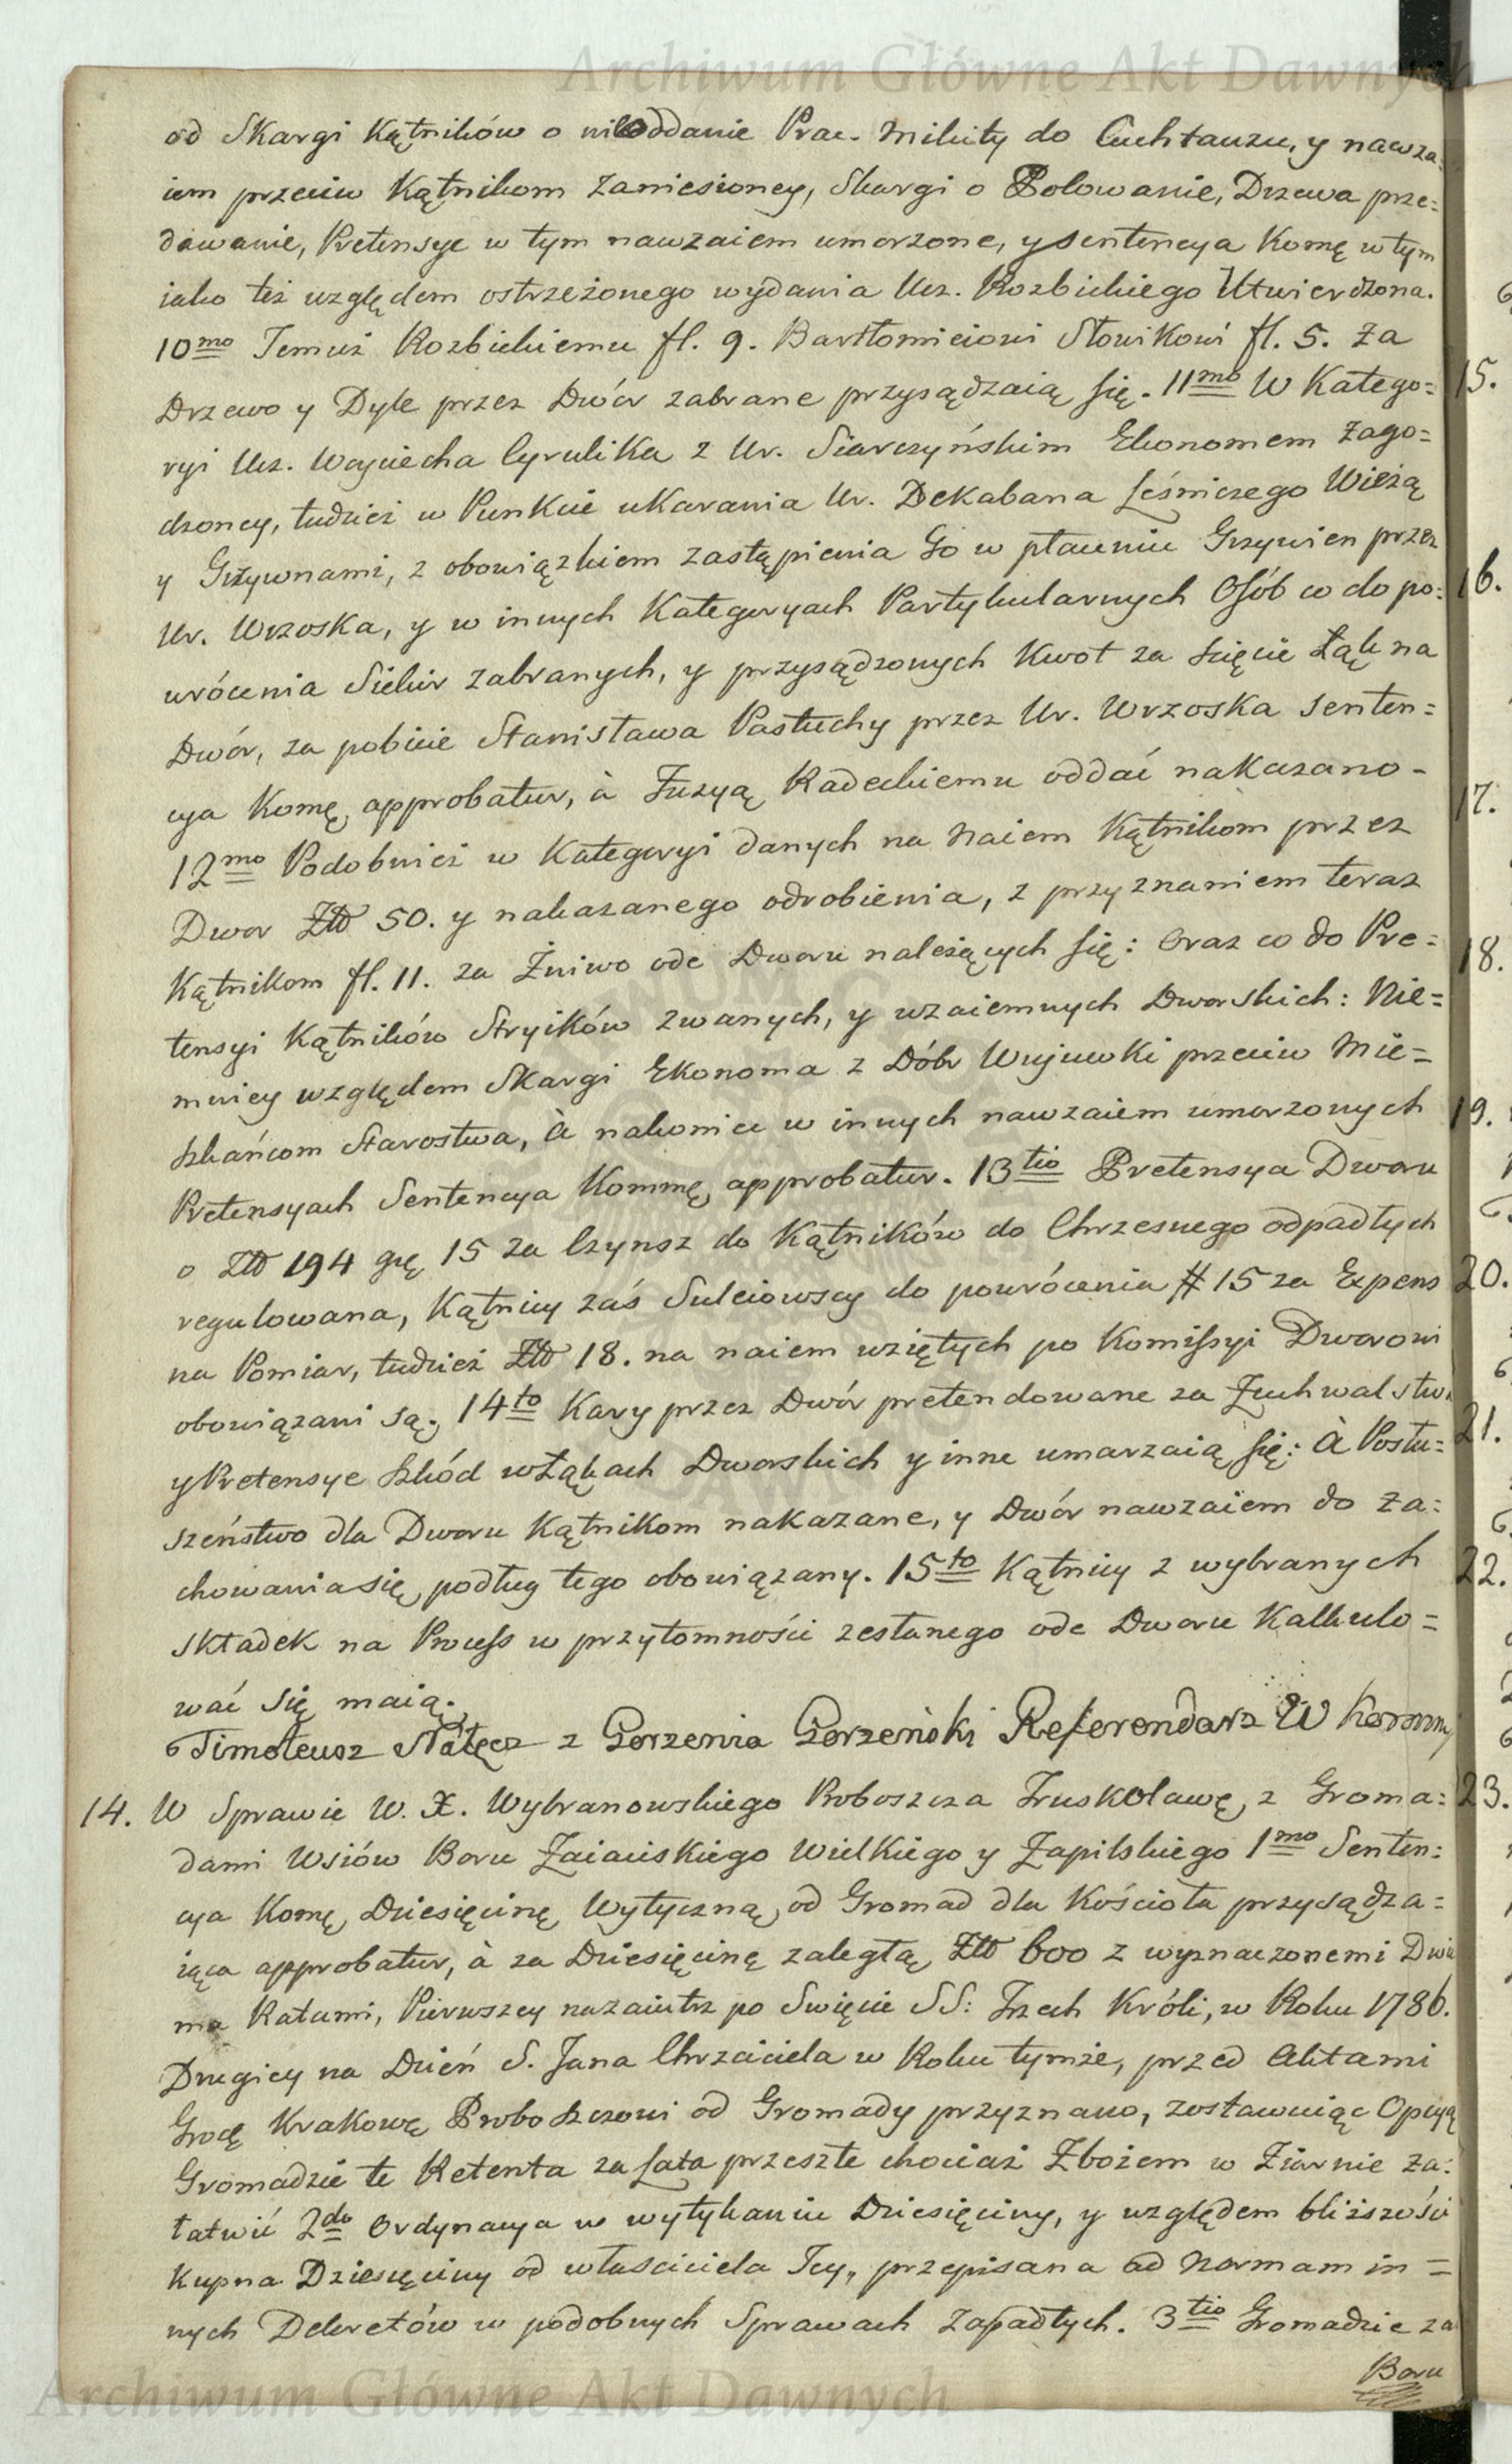 Archiwum Główne Akt Dawnych
od Skargi Kątników o nieoddanie Prac. Mikity do Cuchtauzu, y nawza=
iem przeciw Kątnikom zaniesioney, Skargi o Polowanie, Drzewa prze=
dawanie, Pretensye w tym nawzaiem umorzone, y Sentencya Komę w tym
iako też względem ostrzeżonego wydania Ucz. Rozbickiego Utwierdzona.
10mo Temuż Rozbickiemu fl. 9. Bartłomieiowi Słowikowi fl. 5. za
Drzewo y Dyle przez Dwór zabrane przysądzaią się. 11mo W Katego=
ryi Ucz. Woyciecha Cyrulika z Ur. Siarczyńskim Ekonomem zago=
dzoney, tudzież w Punkcie ukarania Ur. Dekabana Leśniczego Wieżą
y Grzywnami, z obowiązkiem zastąpienia Go w płaceniu Grzywien przez
Ur. Wrzoska, y w innych Kategoryach Partykularnych Osób co do po=
wrócenia Siekir zabranych, y przysądzonych Kwot za Zięcie Łąk na
Dwór, za pobicie Stanisława Pastuchy przez Ur. Wrzoska Senten=
cya Komę approbatur, à Fuzyą Radeckiemu oddać nakazano -
12mo Podobnież w Kategoryi danych na Naiem Kątnikom przez
Dwor Złł 50. y nakazanego odrobienia, z przyznaniem teraz
Kątnikom fl. 11. za Żniwo ode Dworu należących się: Oraz co do Pre=
tensyi Kątników Stryików zwanych, y wzaiemnych Dworskich: Nie=
mniey względem Skargi Ekonoma z Dóbr Wujuwki przeciw Mie=
szkańcom Starostwa, à nakoniec w innych nawzaiem umorzonych
Pretensyach Sentencya Kommę approbatur. 13tio Pretensya Dworu
o Złł 194 grę 15 za Czynsz do Kątników do Chrzesnego odpadłych
regulowana, Kątnicy zaś Sulciowscy do powrócenia # 15 za Expens
na Pomiar, tudzież Złł 18. na naiem wziętych po Komissyi Dworowi
obowiązani są. 14to Kary przez Dwór pretendowane za Zuchwalstwa
y Pretensye szkód w Łąkach Dworskich y inne umarzaią się: à Posłu=
szeństwo dla Dworu Kątnikom nakazane, y Dwór nawzaiem do za=
chowania się podług tego obowiązany. 15to Kątnicy z wybranych
Składek na Process w przytomności zesłanego ode Dworu Kalkulo=
wać się maią.
Timoteusz Nałęcz z Gorzenia Gorzeński Referendarz W Koronny
14. W Sprawie W. X. Wybranowskiego Proboszcza Truskolawę z Groma=
dami Wsiów Boru Zaiaciskiego Wielkiego y Zapilskiego 1mo Senten=
cya Komę Dziesięcinę Wytyczną od Gromad dla Kościoła przysądza=
iąca approbatur, à za Dziesięcinę zaległą Złł 600 z wyznaczonemi Dwie
ma Ratami, Pierwszey nazaiutrz po Święcie SS: Trzech Króli, w Roku 1786.
Drugiey na Dzień S. Jana Chrzciciela w Roku tymże, przed Aktami
Grodę Krakowę Proboszczowi od Gromady przyznano, zostawuiąc Opcyą
Gromadzie te Retenta za Lata przeszłe chociaż Zbożem w Ziarnie za=
łatwić 2do Ordynacya w wytykaniu Dziesięciny, y względem bliższości
kupna Dziesięciny od właściciela Jey, przepisana ad Normam in=
nych Dekretów w podobnych Sprawach zapadłych. 3tio Gromadzie za
Boru
15.
16.
17.
18.
19.
20.
21.
22.
23.
Archiwum Główne Akt Dawnych